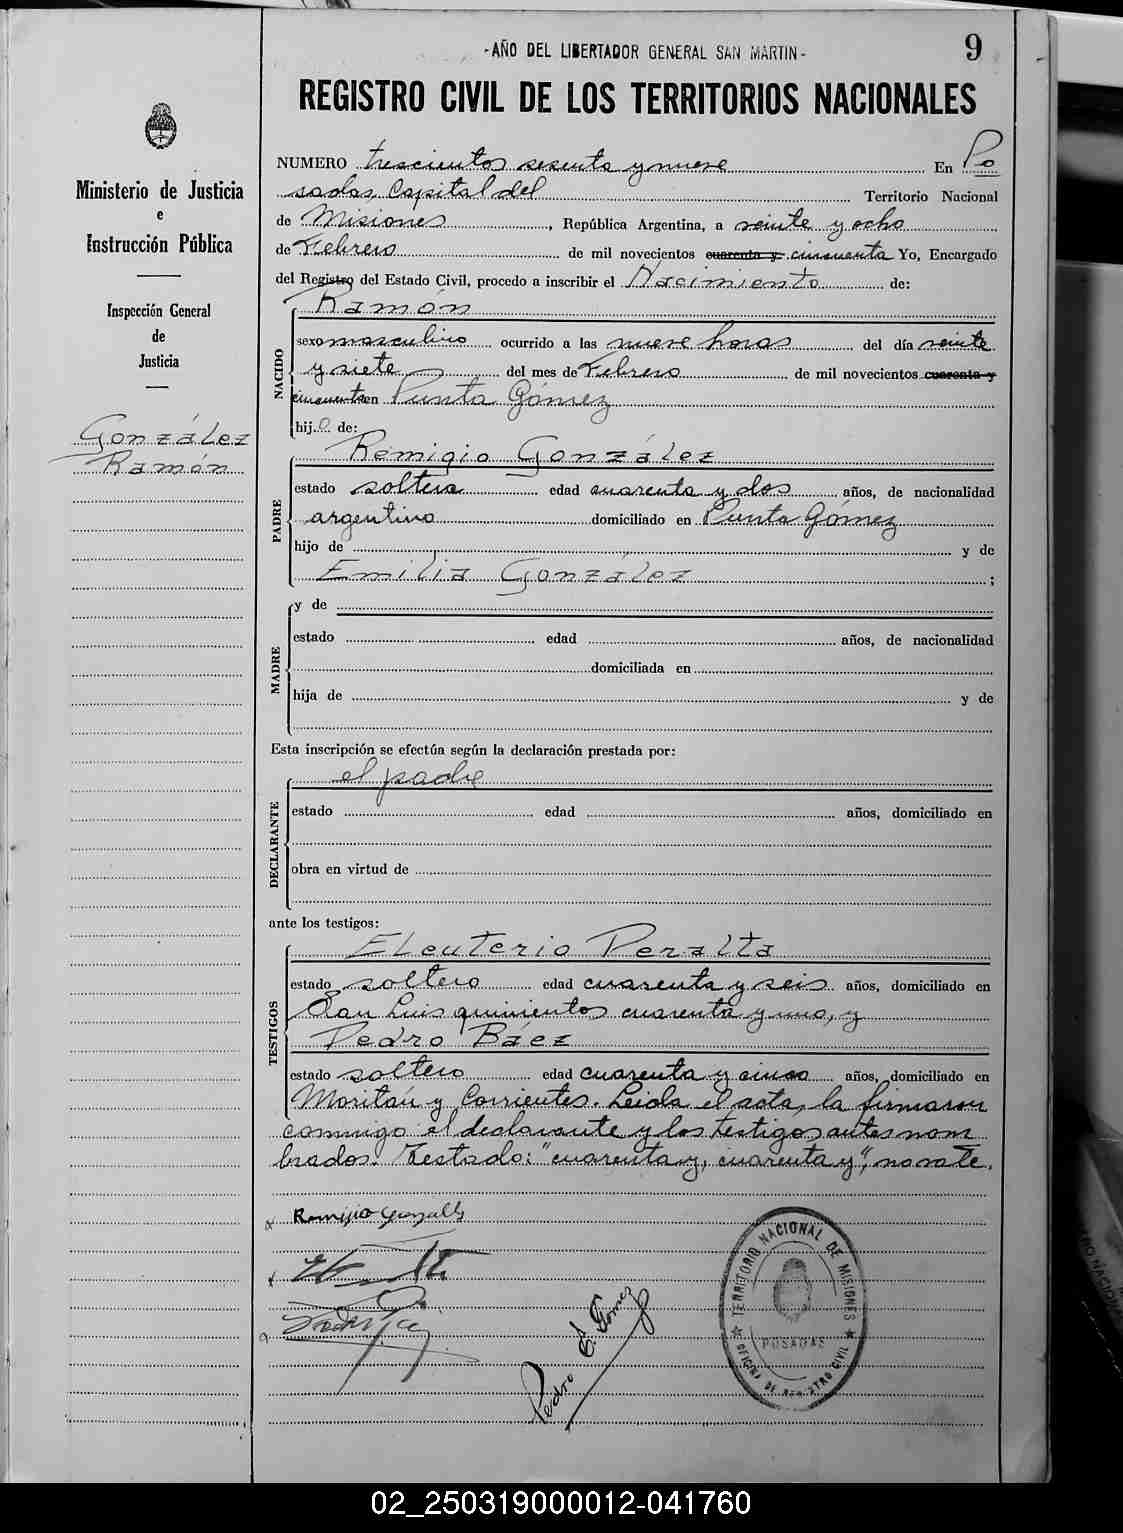 -AÑO DEL LIBERTADOR GENERAL SAN MARTIN-
9
REGISTRO CIVIL DE LOS TERRITORIOS NACIONALES
Ministerio de Justicia
e
Instrucción Pública
Inspección General
de
Justicia
González
Ramón
NUMERO trescientos sesenta y nueve En Po
sadas, Capital del Territorio Nacional
de Misiones, República Argentina, a veinte y ocho
de Febrero de mil novecientos cuarenta y cincuenta Yo, Encargado
del Registro del Estado Civil, procedo a inscribir el Nacimiento de:
NACIDO
Ramón
sexo masculino ocurrido a las nueve horas del día veinte
y siete del mes de Febrero de mil novecientos cuarenta y
cincuenta en Punta Gómez
hijo de:
PADRE
Remigio González
estado soltero edad cuarenta y dos años, de nacionalidad
argentino domiciliado en Punta Gómez
hijo de y de
Emilia González;
MADRE
y de
estado edad años, de nacionalidad
domiciliada en
hija de y de
Esta inscripción se efectúa según la declaración prestada por:
DECLARANTE
el padre
estado edad años, domiciliado en
obra en virtud de
ante los testigos:
TESTIGOS
Eleuterio Peralta
estado soltero edad cuarenta y seis años, domiciliado en
San Luis quinientos cuarenta y uno, y
Pedro Báez
estado soltero edad cuarenta y cinco años, domiciliado en
Moritán y Corrientes. Leída el acta, la firmaron
conmigo el declarante y los testigos antes nom
brados. Testado: "cuarenta y, cuarenta y", no vale.
Remijio Gonzalez
Pedro E. Gomez
TERRITORIO NACIONAL DE MISIONES
POSADAS
OFICINA DE REGISTRO CIVIL
02_250319000012-041760